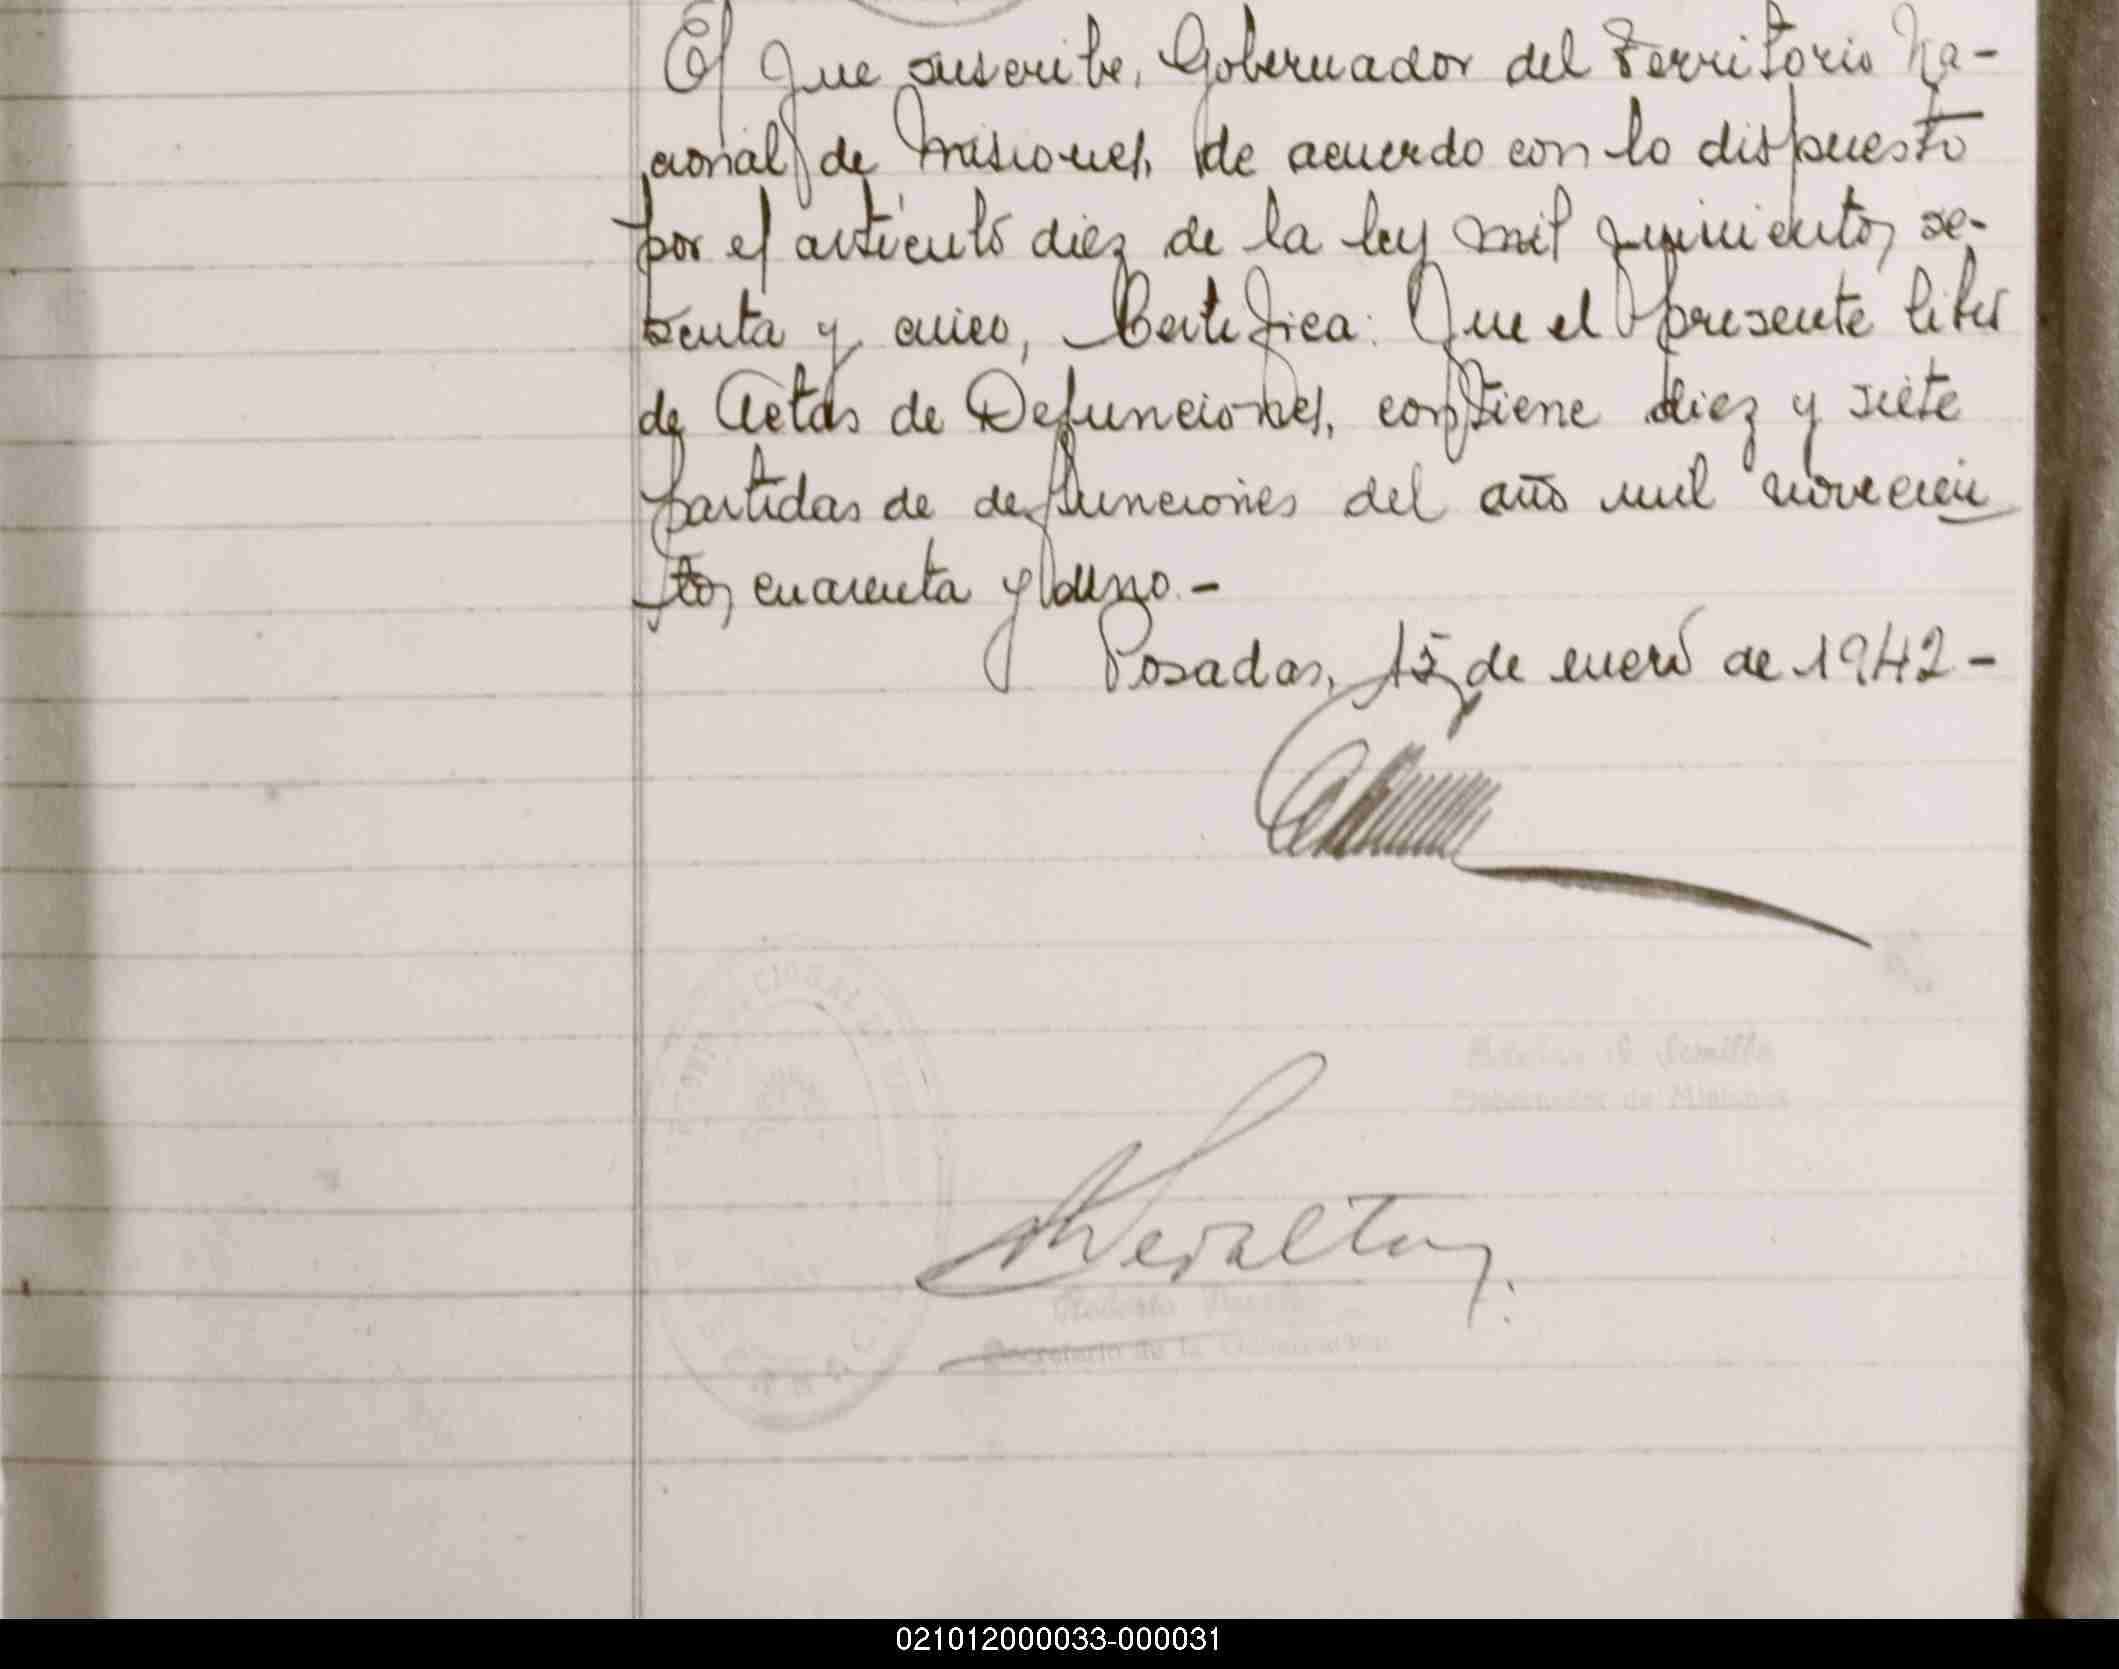 El que suscribe, Gobernador del Territorio Na-
cional de Misiones, de acuerdo con lo dispuesto
por el artículo diez de la ley mil quinientos se-
senta y cinco, Certifica: Que el presente libro
de Actas de Defunciones, contiene diez y siete
partidas de defunciones del año mil novecien
tos cuarenta y uno.-
Posadas, 15 de enero de 1942-
Gobernador de Misiones
Peralta
Secretario de la Gobernación
021012000033-000031